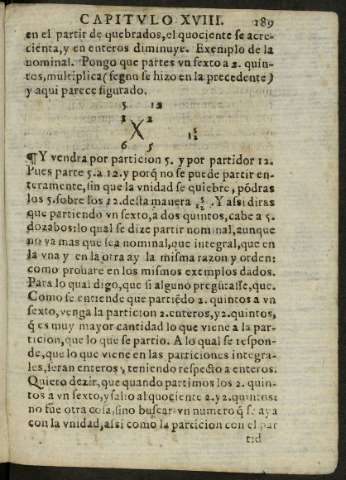 CAPITVLO XVIII. 189
en el partir de quebrados, el quociente se acre-
cienta, y en enteros diminuye. Exemplo de la
nominal. Pongo que partes vn sexto a 2. quin-
tos, multiplica (segun se hizo en la precedente)
y aqui parece figurado.
5 12
X 2
5/12
6 5
¶ Y vendra por particion 5. y por partidor 12.
Pues parte 5. a 12. y porq̃ no se puede partir en-
teramente, sin que la vnidad se quiebre, põdras
los 5. sobre los 12. desta manera 5/12. Y assi diras
que partiendo vn sexto, a dos quintos, cabe a 5.
dozabos: lo qual se dize partir nominal, aunque
no va mas que sea nominal, que integral, que en
la vna y en la otra ay la misma razon y orden:
como prouare en los mismos exemplos dados.
Para lo qual digo, que si alguno pregũtasse, que.
Como se entiende que partiẽdo 2. quintos a vn
sexto, venga la particion 2. enteros, y 2. quintos,
q̃ es muy mayor cantidad lo que viene a la par-
ticion, que lo que se partio. A lo qual se respon-
de, que lo que viene en las particiones integra-
les, seran enteros, teniendo respecto a enteros.
Quiero dezir, que quando partimos los 2. quin-
tos a vn sexto, y salio al quociente 2. y 2. quintos:
no fue otra cosa, sino buscar vn numero q̃ se aya
con la vnidad, assi como la particion con el par
tid